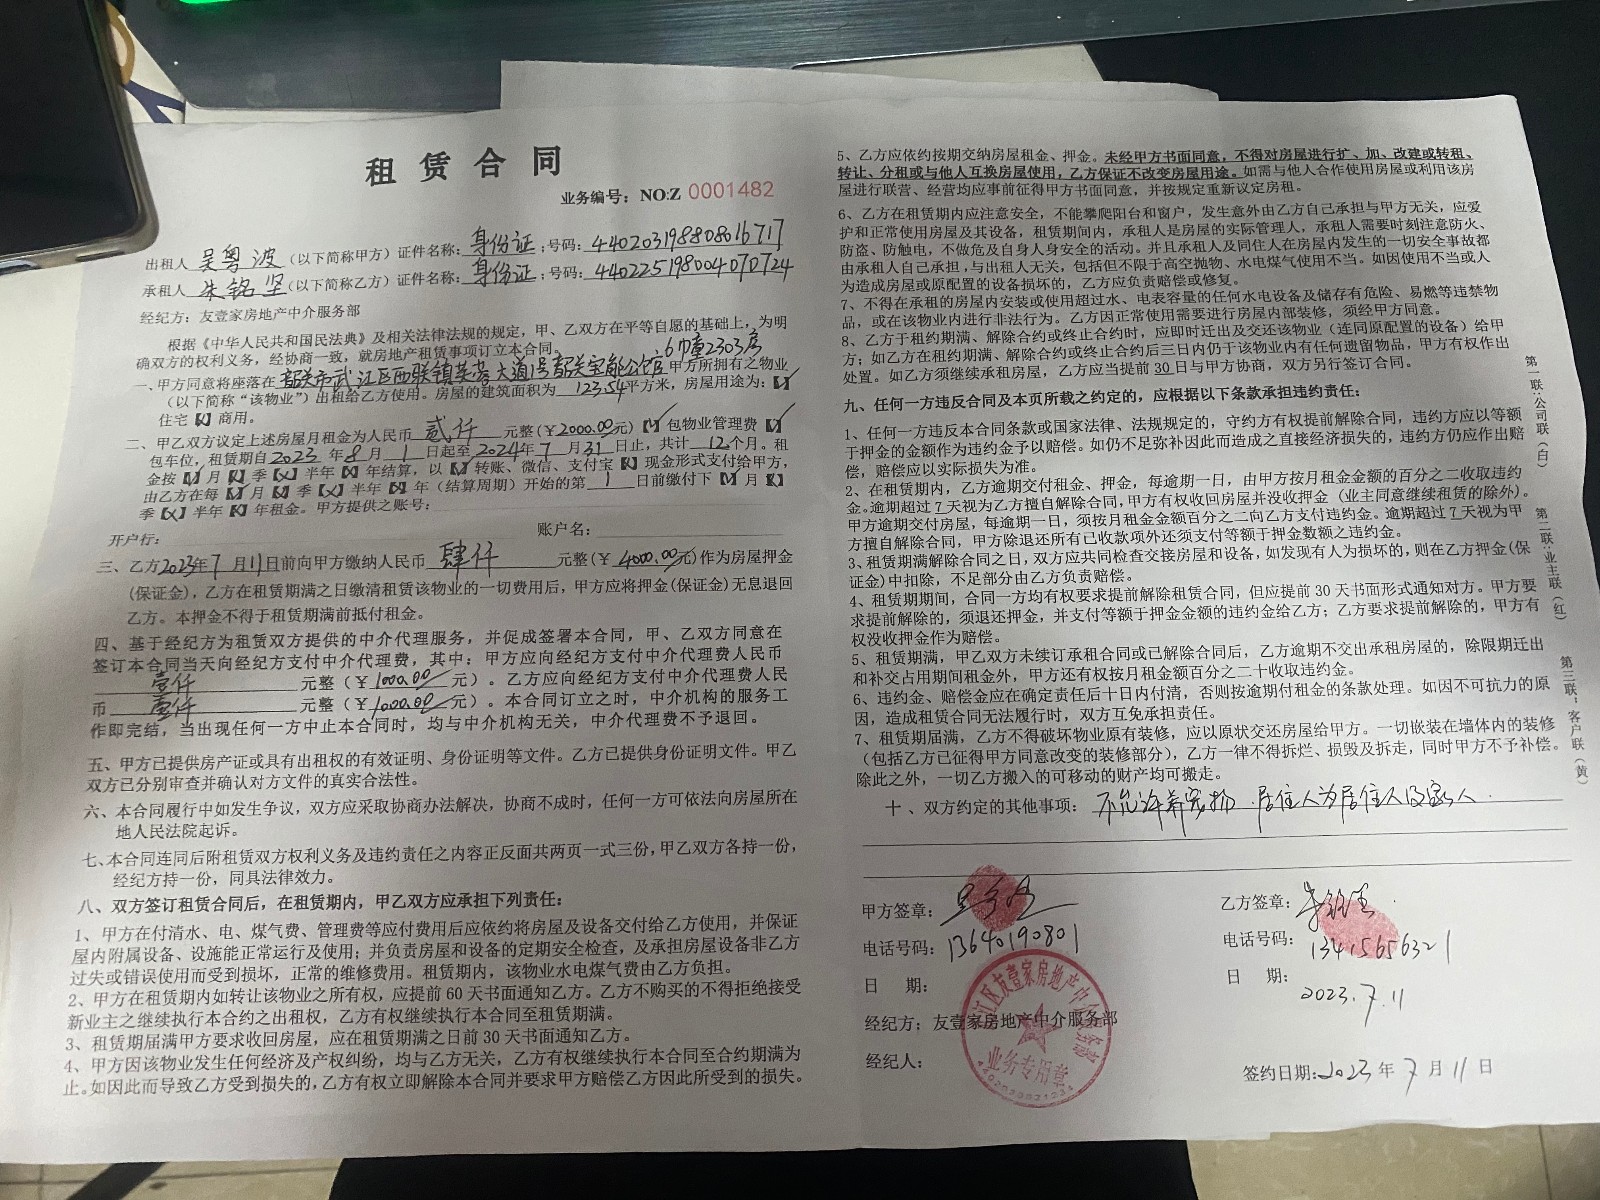 租 赁 合 同
业务编号：NO:Z 0001482
出租人 吴粤波 （以下简称甲方）证件名称：身份证；号码：440203198808016717
承租人 朱铭坚 （以下简称乙方）证件名称：身份证；号码：440225198004070724
经纪方：友壹家房地产中介服务部
根据《中华人民共和国民法典》及相关法律法规的规定，甲、乙双方在平等自愿的基础上，为明
确双方的权利义务，经协商一致，就房地产租赁事项订立本合同。
6幢2303房
一、甲方同意将座落在 韶关市武江区西联镇芙蓉大道 号韶关宝能公馆 甲方所拥有之物业
（以下简称“该物业”）出租给乙方使用。房屋的建筑面积为 123.54 平方米，房屋用途为：【✓】
住宅【×】商用。
二、甲乙双方议定上述房屋月租金为人民币 贰仟 元整（￥2000.00元）【✓】包物业管理费【✓】
包车位，租赁期自2023年8月1日起至2024年7月31日止，共计12个月。租
金按【✓】月【×】季【×】半年【×】年结算，以【✓】转账、微信、支付宝【×】现金形式支付给甲方，
由乙方在每【✓】月【×】季【×】半年【×】年（结算周期）开始的第 1 日前缴付下【✓】月【×】
季【×】半年【×】年租金。甲方提供之账号：
开户行： 账户名：
三、乙方2023年7月11日前向甲方缴纳人民币 肆仟 元整（￥4000.00元）作为房屋押金
（保证金），乙方在租赁期满之日缴清租赁该物业的一切费用后，甲方应将押金（保证金）无息退回
乙方。本押金不得于租赁期满前抵付租金。
四、基于经纪方为租赁双方提供的中介代理服务，并促成签署本合同，甲、乙双方同意在
签订本合同当天向经纪方支付中介代理费，其中：甲方应向经纪方支付中介代理费人民币
壹仟 元整（￥1000.00元）。乙方应向经纪方支付中介代理费人民
币 壹仟 元整（￥1000.00元）。本合同订立之时，中介机构的服务工
作即完结，当出现任何一方中止本合同时，均与中介机构无关，中介代理费不予退回。
五、甲方已提供房产证或具有出租权的有效证明、身份证明等文件。乙方已提供身份证明文件。甲乙
双方已分别审查并确认对方文件的真实合法性。
六、本合同履行中如发生争议，双方应采取协商办法解决，协商不成时，任何一方可依法向房屋所在
地人民法院起诉。
七、本合同连同后附租赁双方权利义务及违约责任之内容正反面共两页一式三份，甲乙双方各持一份，
经纪方持一份，同具法律效力。
八、双方签订租赁合同后，在租赁期内，甲乙双方应承担下列责任：
1、甲方在付清水、电、煤气费、管理费等应付费用后应依约将房屋及设备交付给乙方使用，并保证
屋内附属设备、设施能正常运行及使用；并负责房屋和设备的定期安全检查，及承担房屋设备非乙方
过失或错误使用而受到损坏，正常的维修费用。租赁期内，该物业水电煤气费由乙方负担。
2、甲方在租赁期内如转让该物业之所有权，应提前 60 天书面通知乙方。乙方不购买的不得拒绝接受
新业主之继续执行本合约之出租权，乙方有权继续执行本合同至租赁期满。
3、租赁期届满甲方要求收回房屋，应在租赁期满之日前 30 天书面通知乙方。
4、甲方因该物业发生任何经济及产权纠纷，均与乙方无关，乙方有权继续执行本合同至合约期满为
止。如因此而导致乙方受到损失的，乙方有权立即解除本合同并要求甲方赔偿乙方因此所受到的损失。
5、乙方应依约按期交纳房屋租金、押金。未经甲方书面同意，不得对房屋进行扩、加、改建或转租、
转让、分租或与他人互换房屋使用，乙方保证不改变房屋用途。如需与他人合作使用房屋或利用该房
屋进行联营、经营均应事前征得甲方书面同意，并按规定重新议定房租。
6、乙方在租赁期内应注意安全，不能攀爬阳台和窗户，发生意外由乙方自己承担与甲方无关，应爱
护和正常使用房屋及其设备，租赁期间内，承租人是房屋的实际管理人，承租人需要时刻注意防火、
防盗、防触电，不做危及自身人身安全的活动。并且承租人及同住人在房屋内发生的一切安全事故都
由承租人自己承担，与出租人无关，包括但不限于高空抛物、水电煤气使用不当。如因使用不当或人
为造成房屋或原配置的设备损坏的，乙方应负责赔偿或修复。
7、不得在承租的房屋内安装或使用超过水、电表容量的任何水电设备及储存有危险、易燃等违禁物
品，或在该物业内进行非法行为。乙方因正常使用需要进行房屋内部装修，须经甲方同意。
8、乙方于租约期满、解除合约或终止合约时，应即时迁出及交还该物业（连同原配置的设备）给甲
方；如乙方在租约期满、解除合约或终止合约后三日内仍于该物业内有任何遗留物品，甲方有权作出
处置。如乙方须继续承租房屋，乙方应当提前 30 日与甲方协商，双方另行签订合同。
九、任何一方违反合同及本页所载之约定的，应根据以下条款承担违约责任：
1、任何一方违反本合同条款或国家法律、法规规定的，守约方有权提前解除合同，违约方应以等额
于押金的金额作为违约金予以赔偿。如仍不足弥补因此而造成之直接经济损失的，违约方仍应作出赔
偿，赔偿应以实际损失为准。
2、在租赁期内，乙方逾期交付租金、押金，每逾期一日，由甲方按月租金金额的百分之二收取违约
金。逾期超过 7 天视为乙方擅自解除合同，甲方有权收回房屋并没收押金（业主同意继续租赁的除外）。
甲方逾期交付房屋，每逾期一日，须按月租金金额百分之二向乙方支付违约金。逾期超过 7 天视为甲
方擅自解除合同，甲方除退还所有已收款项外还须支付等额于押金数额之违约金。
3、租赁期满解除合同之日，双方应共同检查交接房屋和设备，如发现有人为损坏的，则在乙方押金（保
证金）中扣除，不足部分由乙方负责赔偿。
4、租赁期期间，合同一方均有权要求提前解除租赁合同，但应提前 30 天书面形式通知对方。甲方要
求提前解除的，须退还押金，并支付等额于押金金额的违约金给乙方；乙方要求提前解除的，甲方有
权没收押金作为赔偿。
5、租赁期满，甲乙双方未续订承租合同或已解除合同后，乙方逾期不交出承租房屋的，除限期迁出
和补交占用期间租金外，甲方还有权按月租金额百分之二十收取违约金。
6、违约金、赔偿金应在确定责任后十日内付清，否则按逾期付租金的条款处理。如因不可抗力的原
因，造成租赁合同无法履行时，双方互免承担责任。
7、租赁期届满，乙方不得破坏物业原有装修，应以原状交还房屋给甲方。一切嵌装在墙体内的装修
（包括乙方已征得甲方同意改变的装修部分），乙方一律不得拆烂、损毁及拆走，同时甲方不予补偿。
除此之外，一切乙方搬入的可移动的财产均可搬走。
十、双方约定的其他事项：不允许养宠物．居住人为居住人及家人．
甲方签章： 乙方签章：
电话号码：13640190801 电话号码：13415656321
日 期： 日 期：2023.7.11
经纪方：友壹家房地产中介服务部
经纪人：
签约日期：2023年7月11日
江区友壹家房地产中介服务部
业务专用章
第一联：公司联（白）
第二联：业主联（红）
第三联：客户联（黄）